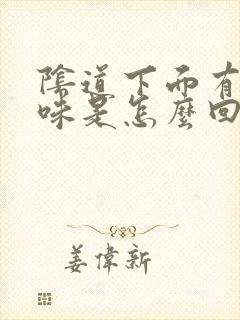 陰道下面有
味是怎麼回
姜偉新